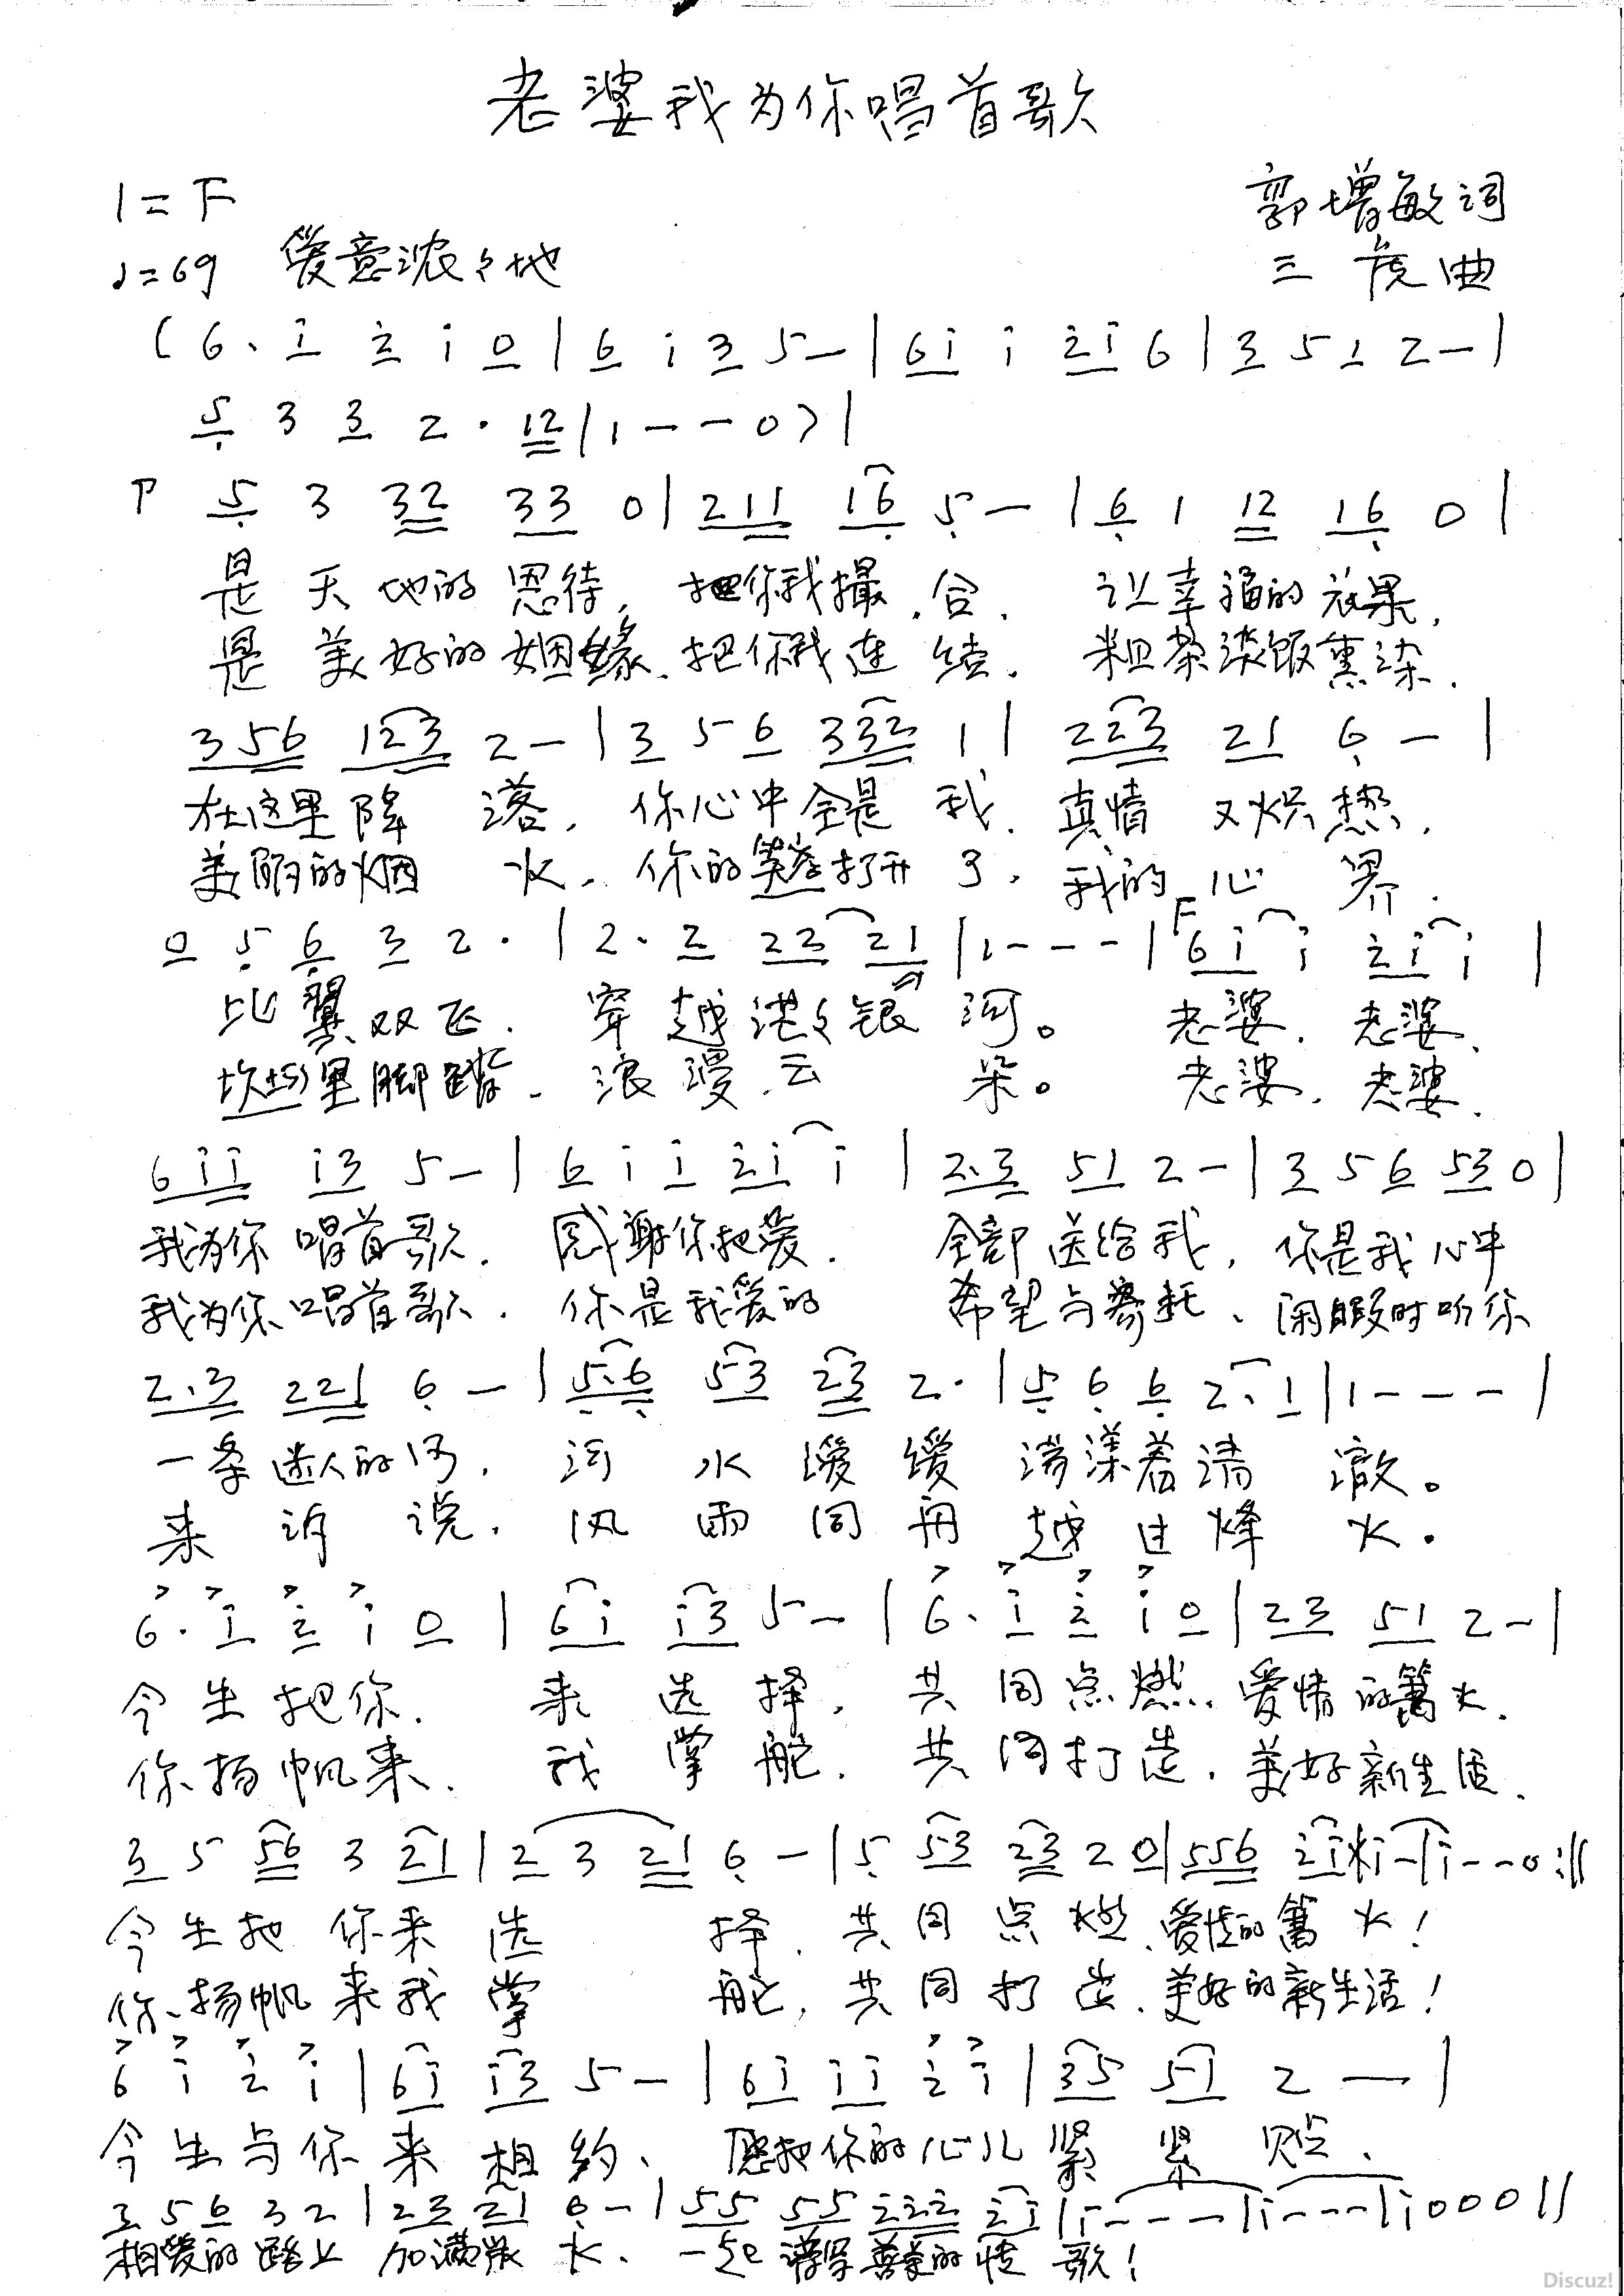 老婆我为你唱首歌
1=F
郭增敏词
♩=69 爱意浓々地
三虎曲
(6· i 2 i 0 | 6 i 3 5 — | 6i i 2i 6 | 3 5 1 2 — |
5 3 3 2 · 12 | 1 - - 0 ) |
P 5 3 32 33 0 | 211 16 5 — | 6 1 12 16 0 |
是天地的恩待, 把你我撮合. 让幸福的效果,
是美好的姻缘. 把你我连结. 粗茶淡饭熏染.
356 123 2 — | 3 5 6 332 1 | 223 21 6 — |
在这里降落, 你心中全是我. 真情又炽热,
美丽的烟火. 你的笑容打开了, 我的心界.
0 5 6 3 2 · | 2 · 2 23 21 | 1 - - - | F 6i i 2i i |
比翼双飞. 穿越茫々银河。 老婆. 老婆.
坎坷里脚踏. 浪漫云朵。 老婆. 老婆.
6ii i3 5 — | 6 i i 2i i | 2·3 51 2 — | 3 5 6 53 0 |
我为你唱首歌. 感谢你把爱. 全部送给我, 你是我心中
我为你唱首歌. 你是我爱的 希望与寄托、 闲暇时听你
2·3 221 6 — | 5·6 53 23 2 · | 5 6 6 2·1 | 1 - - - |
一条迷人的河, 河水缓缓荡漾着清澈。
来诉说, 风雨同舟越过烽火.
6· i 2 i 0 | 6i i3 5 — | 6· i 2 i 0 | 23 51 2 — |
今生把你. 来选择, 共同点燃. 爱情的篝火.
你扬帆来. 我掌舵. 共同打造. 美好新生活.
3 5 56 3 21 | 2 3 21 6 — | 5 53 23 2 0 | 556 2i i - | i - - 0 :||
今生把你来选择. 共同点燃. 爱情的篝火!
你扬帆来我掌舵, 共同打造. 美好的新生活!
6 i 2 i | 6i i3 5 — | 6i ii 2 i | 35 51 2 — |
今生与你来相约、 愿把你的心儿紧紧贴.
3 5 6 3 2 | 23 21 6 - | 55 55 222 2i | i - - - | i - - - | i 0 0 0 ||
相爱的路上加满柴火. 一起谱写美的情歌!
Discuz!